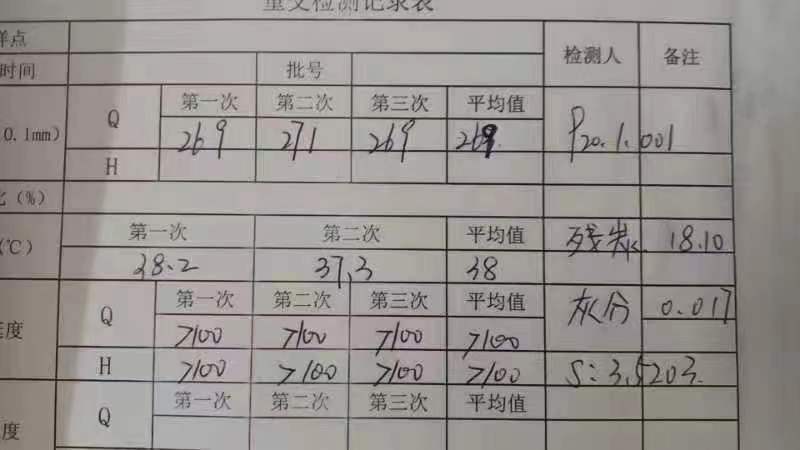 重交检测记录表
样点
检测人 备注
时间 批号
第一次 第二次 第三次 平均值
0.1mm) Q 269 271 269 269 ρ20.1.001
H
比(%)
(℃) 第一次 第二次 平均值 残炭 18.10
38.2 37.3 38
延度 Q 第一次 第二次 第三次 平均值 灰分 0.017
>100 >100 >100 >100
H >100 >100 >100 >100 S:3.5203
度 Q 第一次 第二次 第三次 平均值